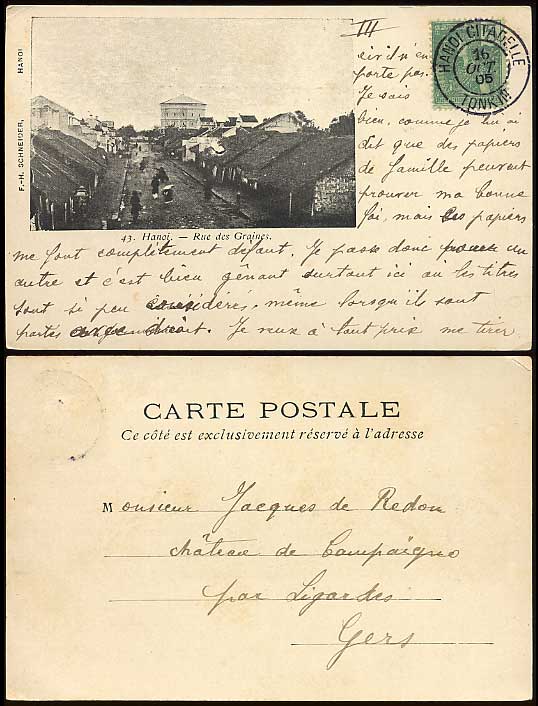 III
F.-H. SCHNEIDER, HANOI
HANOI CITADELLE
16
OCT
05
TONKIN
civil n'en
porte pas.
Je sais
bien, comme je lui ai
dit que des papiers
de famille peuvent
prouver ma bonne
foi, mais les papiers
43. Hanoi. — Rue des Graines.
me font complètement défaut. Je passe donc pour un
autre et c'est bien gênant surtout ici où les titres
sont si peu considérés, même lorsqu'ils sont
portés droit. Je veux à tout prix me tirer
CARTE POSTALE
Ce côté est exclusivement réservé à l'adresse
Monsieur Jacques de Redon
château de Campaigno
par Ligardes
Gers